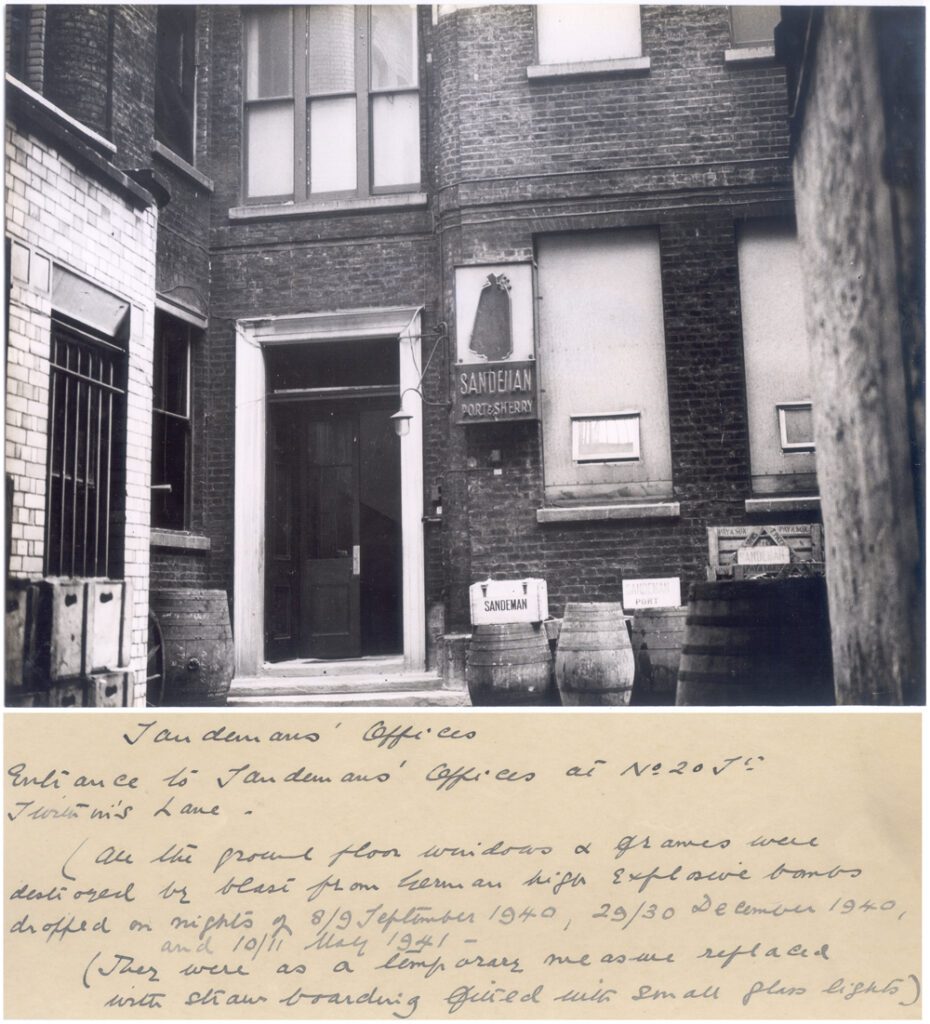 SANDEMAN
PORT & SHERRY
SANDEMAN
SANDEMAN
PORT
SANDEMAN
Sandemans' Offices
Entrance to Sandemans' Offices at No 20 St
Swithin's Lane -
(All the ground floor windows & frames were
destroyed by blast from German high Explosive bombs
dropped on nights of 8/9 September 1940, 29/30 December 1940,
and 10/11 May 1941 -
(They were as a temporary measure replaced
with straw boarding fitted with small glass lights)